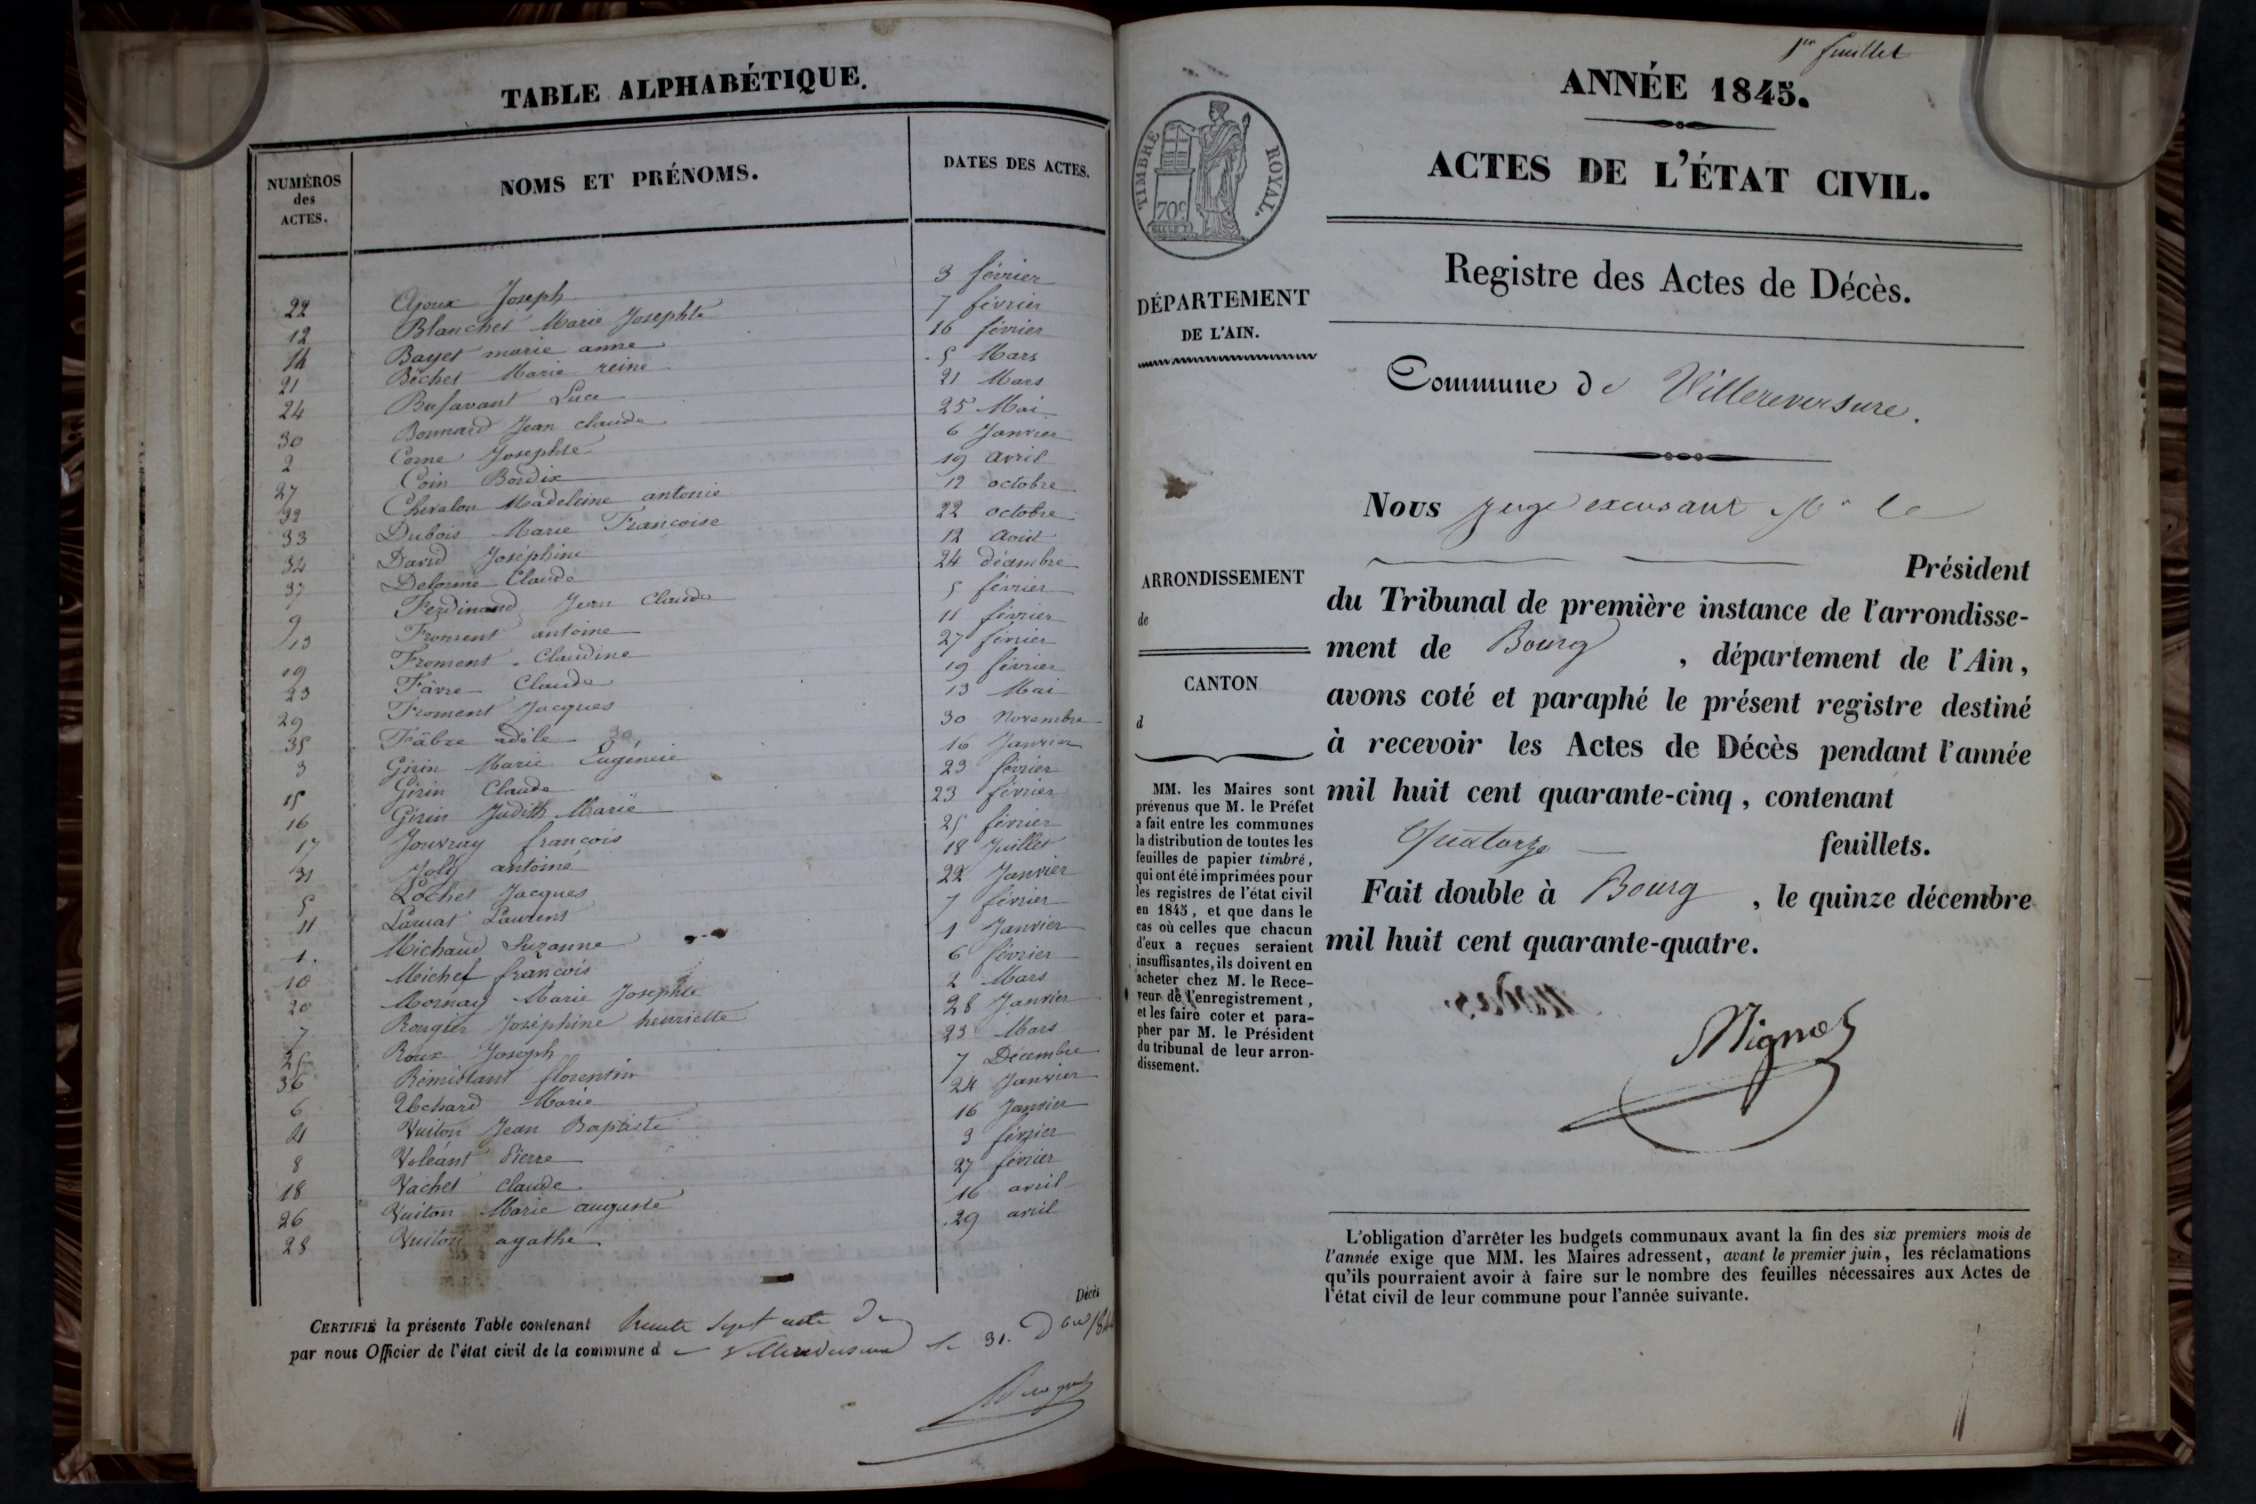 TABLE ALPHABÉTIQUE.
NUMÉROS des ACTES. NOMS ET PRÉNOMS. DATES DES ACTES.
22 Ajoux Joseph 3 février
12 Blanchet Marie Josephte 7 février
14 Bayet marie anne 16 février
21 Béchet Marie reine 5 Mars
24 Bufavant Luce 21 Mars
30 Bonnard Jean claude 25 Mai
2 Corne Josephte 6 Janvier
27 Coin 19 avril
32 Chevalon Madeleine antonie 12 octobre
33 Dubois Marie Françoise 22 octobre
32 David Joséphine 12 Aout
37 Delorme Claude 24 décembre
9 Ferdinand Jean Claude 5 février
13 Froment antoine 11 février
19 Froment Claudine 27 février
23 Fâvre Claude 19 février
29 Froment Jacques 13 Mai
35 Fâbre adèle 30 Novembre
3 Girin Marie Eugénie 16 Janvier
15 Girin Claude 23 février
16 Girin Judith Marie 23 février
17 Jouvray françois 25 février
31 Jolly antoine 18 Juillet
5 Lochet Jacques 22 Janvier
11 Laurent 7 février
1. Michaud Suzanne 1 Janvier
10 Michel françois 6 février
20 Mornay Marie Josephte 2 Mars
7 Rougier Joséphine henriette 28 Janvier
25 Roux Joseph 23 Mars
36 florentin 7 Décembre
6 Uchard Marie 24 Janvier
4 Vuiton Jean Baptiste 16 Janvier
8 Voléant Pierre 3 février
18 Vachet claude 27 février
26 Vuiton Marie auguste 16 avril
28 Vuiton agathe 29 avril
Décès
CERTIFIÉ la présente Table contenant trente sept acte de
par nous Officier de l'état civil de la commune d Villereversure le 31. Dbre
1er feuillet
ANNÉE 1845.
ACTES DE L'ÉTAT CIVIL.
TIMBRE ROYAL.
70c
Registre des Actes de Décès.
DÉPARTEMENT
DE L'AIN.
Commune de Villereversure.
ARRONDISSEMENT
de
CANTON
d
MM. les Maires sont
prévenus que M. le Préfet
a fait entre les communes
la distribution de toutes les
feuilles de papier timbré,
qui ont été imprimées pour
les registres de l'état civil
en 1845, et que dans le
cas où celles que chacun
d'eux a reçues seraient
insuffisantes, ils doivent en
acheter chez M. le Rece-
veur de l'enregistrement,
et les faire coter et para-
pher par M. le Président
du tribunal de leur arron-
dissement.
Nous juge excusant Mr le
Président
du Tribunal de première instance de l'arrondisse-
ment de Bourg, département de l'Ain,
avons coté et paraphé le présent registre destiné
à recevoir les Actes de Décès pendant l'année
mil huit cent quarante-cinq, contenant
Quatorze feuillets.
Fait double à Bourg, le quinze décembre
mil huit cent quarante-quatre.
L'obligation d'arrêter les budgets communaux avant la fin des six premiers mois de
l'année exige que MM. les Maires adressent, avant le premier juin, les réclamations
qu'ils pourraient avoir à faire sur le nombre des feuilles nécessaires aux Actes de
l'état civil de leur commune pour l'année suivante.